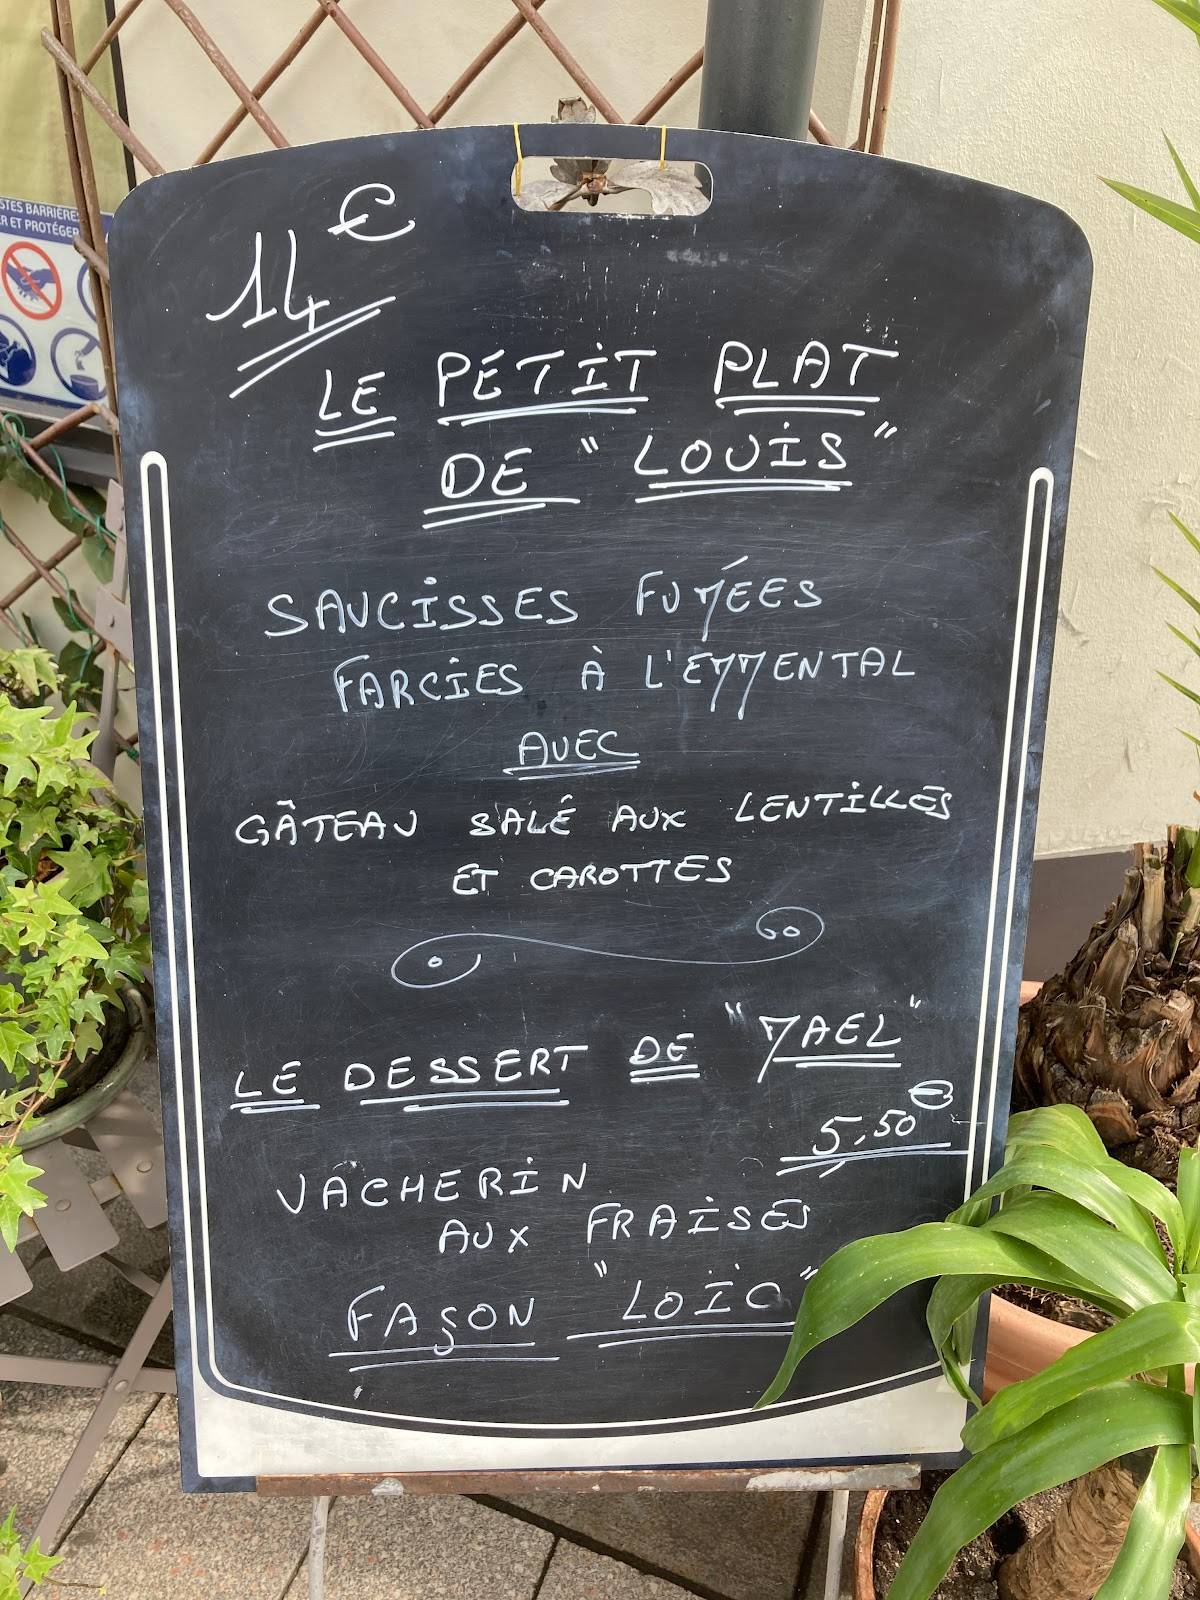 STES BARRIÈRES
R ET PROTÉGER
14 €
LE PETIT PLAT
DE "LOUIS"
SAUCISSES FUMÉES
FARCIES À L'EMMENTAL
AVEC
GÂTEAU SALÉ AUX LENTILLES
ET CAROTTES
LE DESSERT DE "MAEL"
5,50€
VACHERIN
AUX FRAISES
FAÇON "LOÏC"